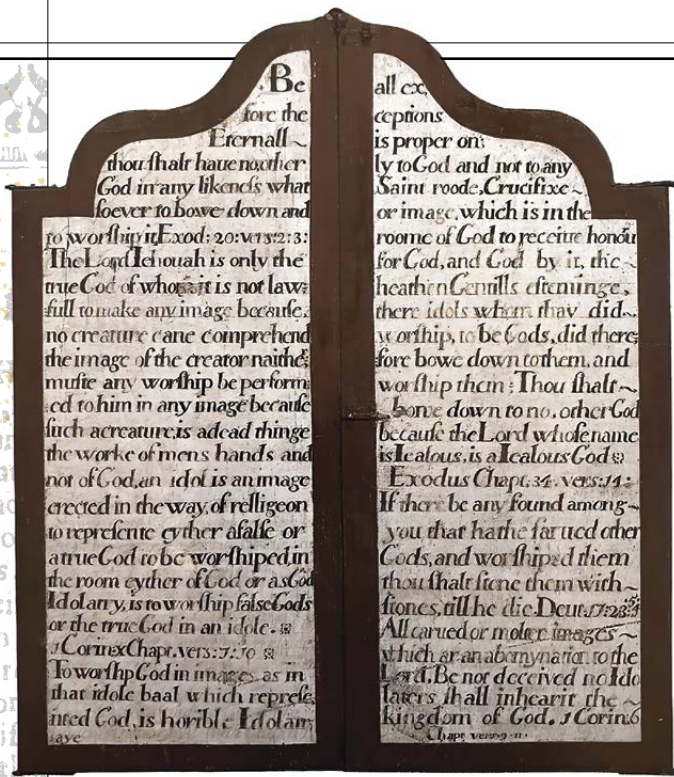 Be
fore the
Eternall ~
thou ſhalt haue no other
God in any likeneſs what
ſoever to bowe down and
to worſhip it Exod: 20: vers: 2: 3:
The Lord Iehouah is only the
true God of whom it is not law:
full to make any image becauſe,
no creature cane comprehend
the image of the creator naithe:
muſte any worſhip be perform:
ed to him in any image becauſe
ſuch a creature, is a dead thinge
the worke of mens hands and
not of God, an idol is an image
erected in the way, of relligeon
to repreſente eyther a falſe or
a true God to be worſhiped, in
the room eyther of God or as God
Idolatry, is to worſhip falſe Gods
or the true God in an idole.
1 Corinx Chapt. vers: 7: 10
To worſhp God in images, as in
that idole baal which repreſe,
nted God, is horible Idolatri
aye
all ex,
ceptions
is proper on:
ly to God and not to any
Saint roode, Crucifixe ~
or image, which is in the
roome of God to receiue honour
for God, and God by it, the ~
heathen Gentills eſteminge,
there idols whom thay did ~
worſhip, to be Gods, did there,
fore bowe down to them, and
worſhip them: Thou ſhalt ~
bowe down to no. other God
becauſe the Lord whoſe name
is Iealous, is a Iealous God
Exodus Chapt. 34. vers: 14:
If there be any found among ~
you that hathe ſarued other
Gods, and worſhiped them
thou ſhalt ſtone them with ~
ſtones, till he die. Deut. 17:
All carued or molten images ~
which ar an abomynation to the
Lord. Be not deceived no Ido
laters ſhall inhearit the ~
kingdom of God. 1 Corin: 6
Chapt vers: 9 - 11 -